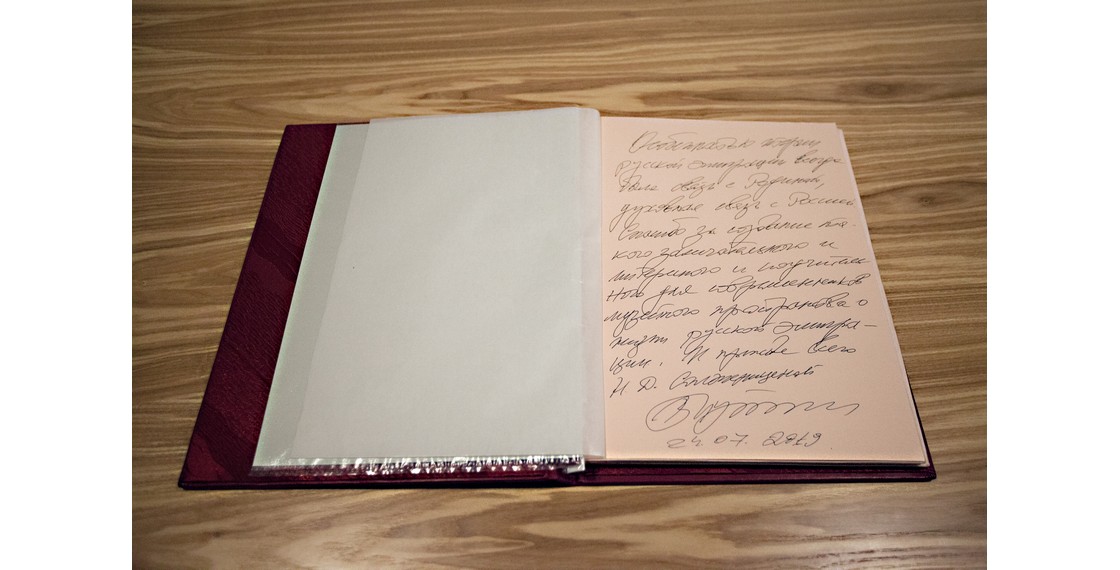 русской эмиграции всегда
была связь с Родиной,
духовная связь с Россией
Спасибо за создание та-
кого замечательного и
интересного и поучитель
ного для современников
музейного пространства о
жизни русской эмигра-
ции. И прежде всего
Н Д. Солженицыной
24.07. 2019